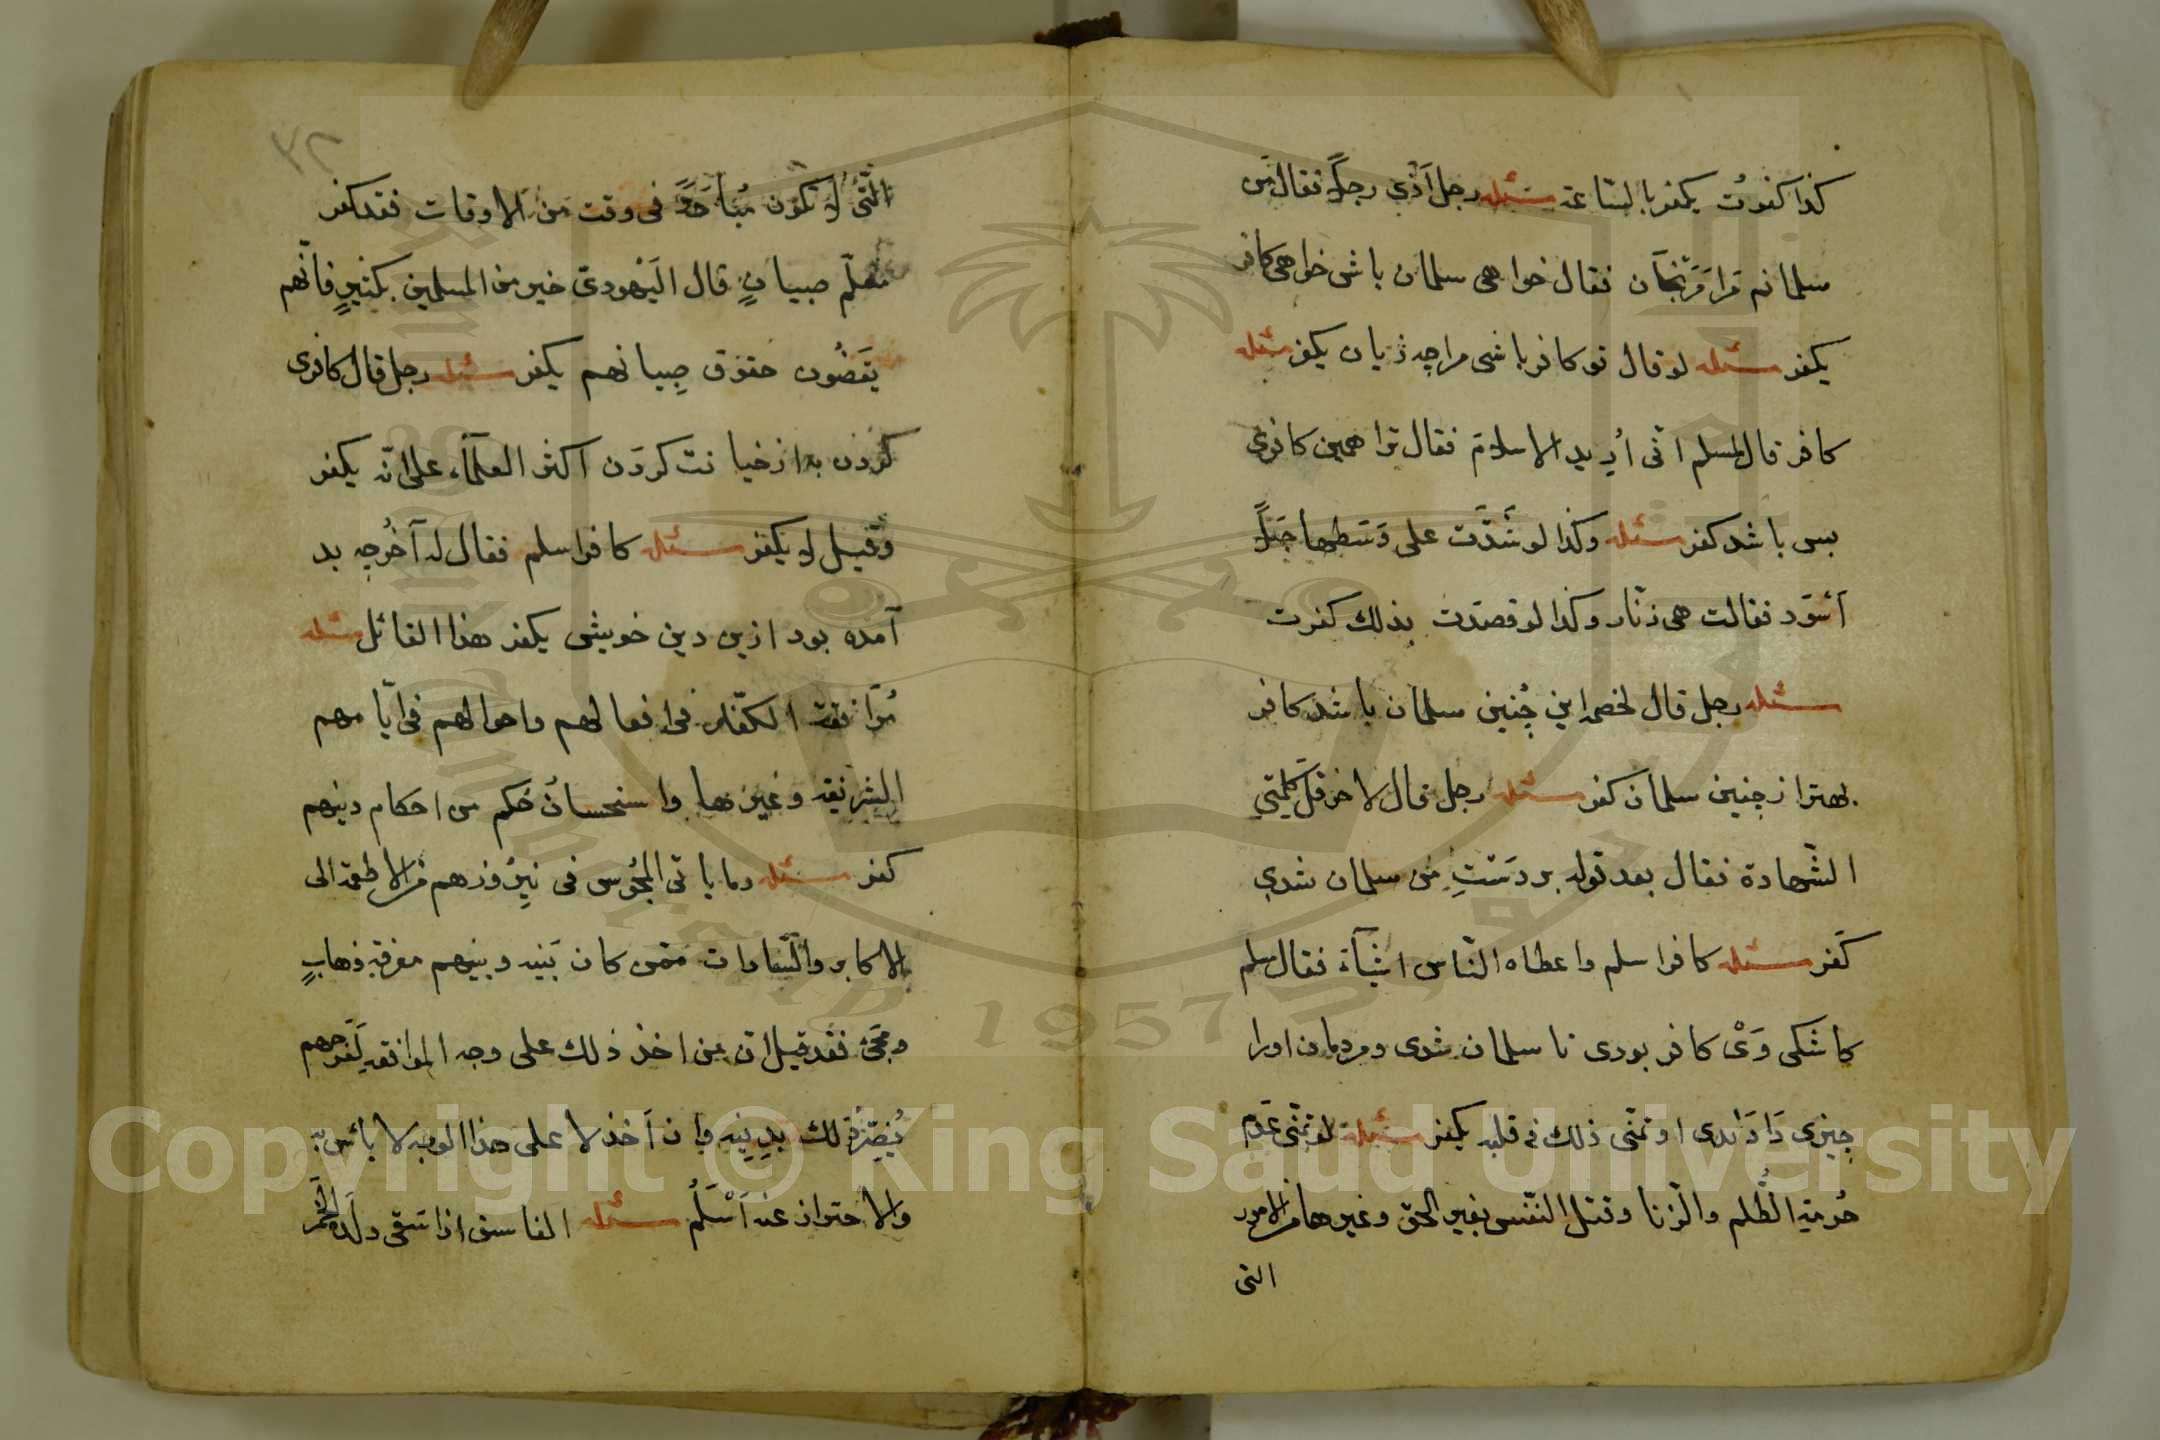 كذا كفرت يكفر بالساعة مسئله رجل آذي رجلاً فقال من
مسلمانم مرا مرنجان فقال خواهى مسلمان باش خواهى كافر
يكفر مسئله لو قال تو كافر باشى مرا چه زيان يكفر مسئله
كافر قال لمسلم انّى أريد الاسلام فقال ترا همين كافرى
بس باشد كفر مسئله وكذا لو شدّت على وسطها حبلاً
أسود فقالت هى زنّار وكذا لو قصدت بذلك كفرت
مسئله رجل قال لخصمه اين چنين مسلمان باشد كافر
بهتر از چنين مسلمان كفر مسئله رجل قال لاخر قل كلمتي
الشّهادة فقال بعد قوله بر دست من مسلمان شدي
كفر مسئله كافر اسلم واعطاه النّاس اشيآء فقال مسلم
كاشكى وى كافر بودى تا مسلمان شدى ومردمان اورا
چيزى دادندى او تمنّى ذلك فى قلبه يكفر مسئله لو تمنّى عدم
حُرمة الظُّلم والزّنا وقتل النّفس بغير الحق وغيرها من الامور
التى
٣٢
الّتى لا تكون مُباحةً فى وقت من الاوقات فقد كفر
معلّم صبيانٍ قال اليَهوديّ خير من المسلمين بكثيرٍ فانّهم
يقضُون حقوق صِبيانهم يكفر مسئله رجل قال كافرى
كردن به از خيانت كردن اكثر العلمآء على انّه يكفر
وقيل لا يكفر مسئله كافر اسلم فقال له آخَر چه بد
آمده بود ازين دين خويش يكفر هذا القائل مسئله
مُوَافقة الكفّار فى افعالهم واحوالهم فى ايّامهم
الشريفة وغيرها واستحسانُ حُكم من احكام دينهم
كفر مسئله وما ياتى المجُوس فى نيرُوزهم من الاطعمة الى
الاكابر والسّادات ممّن كان بَينه وبينهم معرفة وذهابٍ
ومجئ فقد قيل انّ من اخذ ذلك على وجه الموافقة لفرحهم
يُضرّ ذلك بدِينِه وان اَخذ لا على هذا الوجه لا بائس به
والاحتراز عنه اَسْلَمُ مسئله الفاسق اذا سَقى ولَده الخَمْر